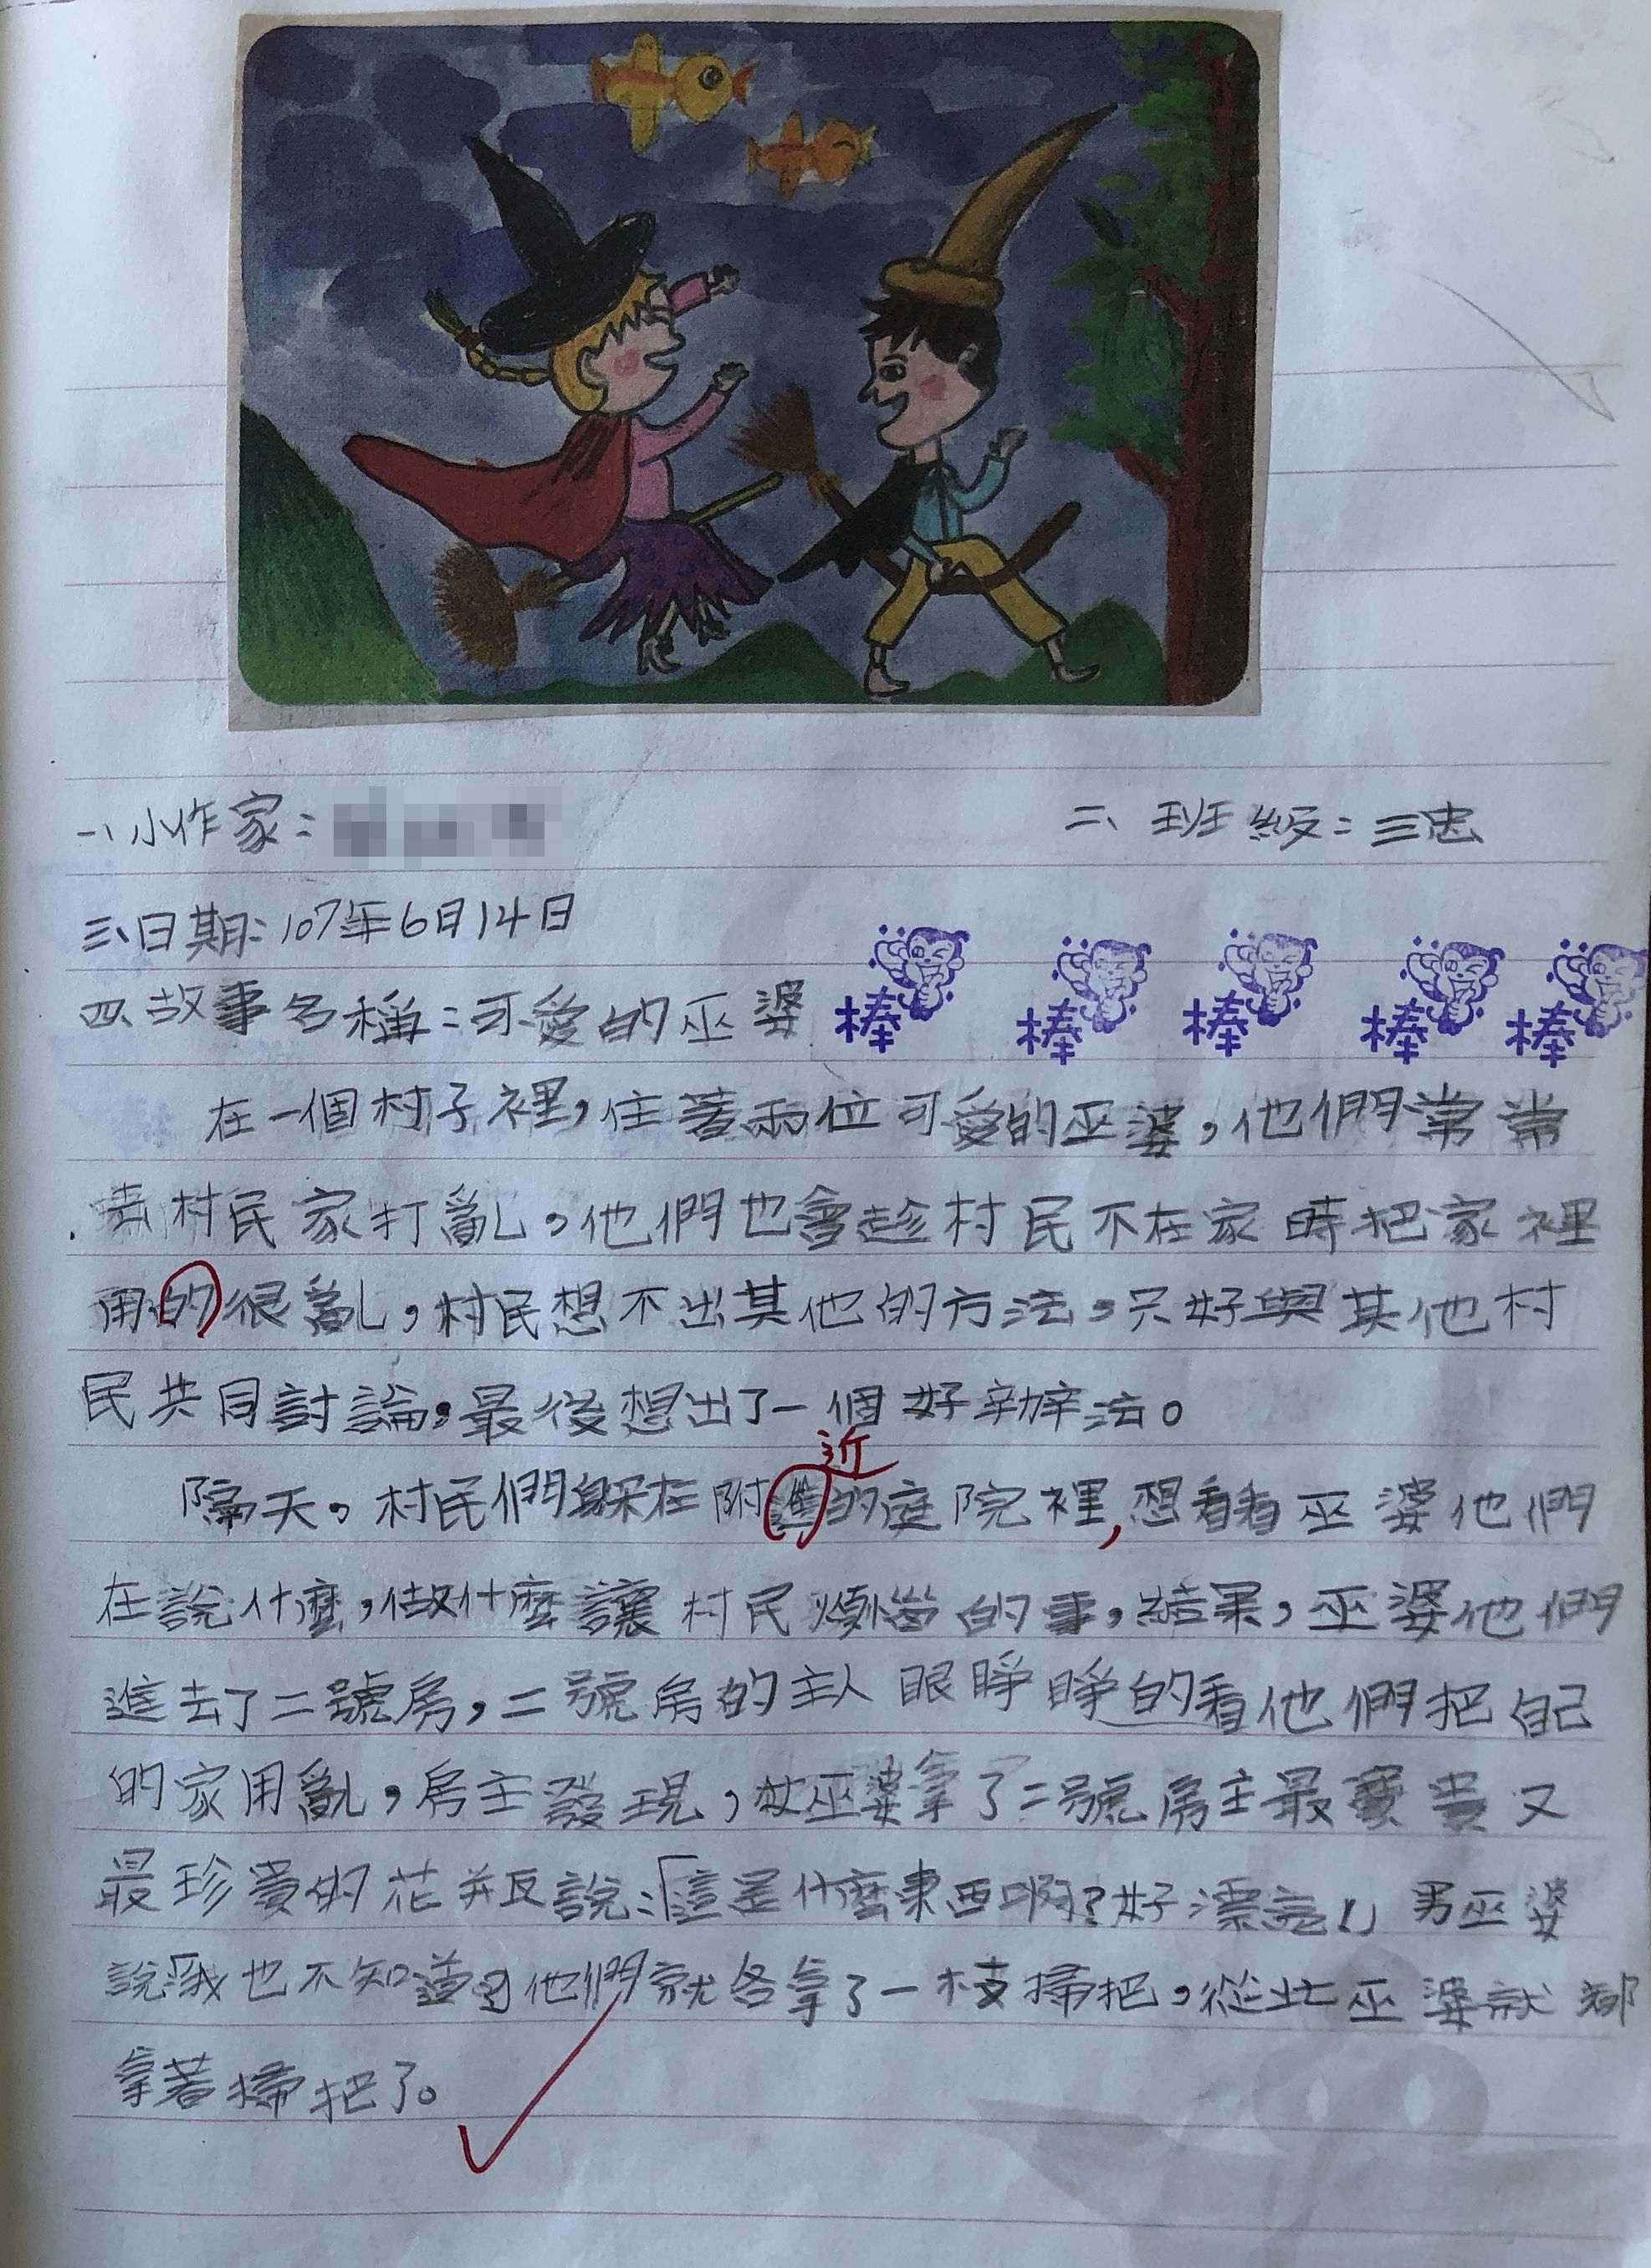 一、小作家：
二、班級：三忠
三、日期：107年6月14日
四、故事名稱：可愛的巫婆
棒 棒 棒 棒 棒
在一個村子裡，住著兩位可愛的巫婆，他們常常
去村民家打亂，他們也會趁村民不在家時把家裡
用的很亂，村民想不出其他的方法，只好與其他村
民共同討論，最後想出了一個好辦法。
近
隔天，村民們躲在附進的庭院裡，想看看巫婆他們
在說什麼，做什麼讓村民煩惱的事，結果，巫婆他們
進去了二號房，二號房的主人眼睜睜的看他們把自己
的家用亂，房主發現，女巫婆拿了二號房主最寶貴又
最珍貴的花瓶說：「這是什麼東西啊？好漂亮！」男巫婆
說「我也不知道」他們就各拿了一枝掃把，從此巫婆就都
拿著掃把了。